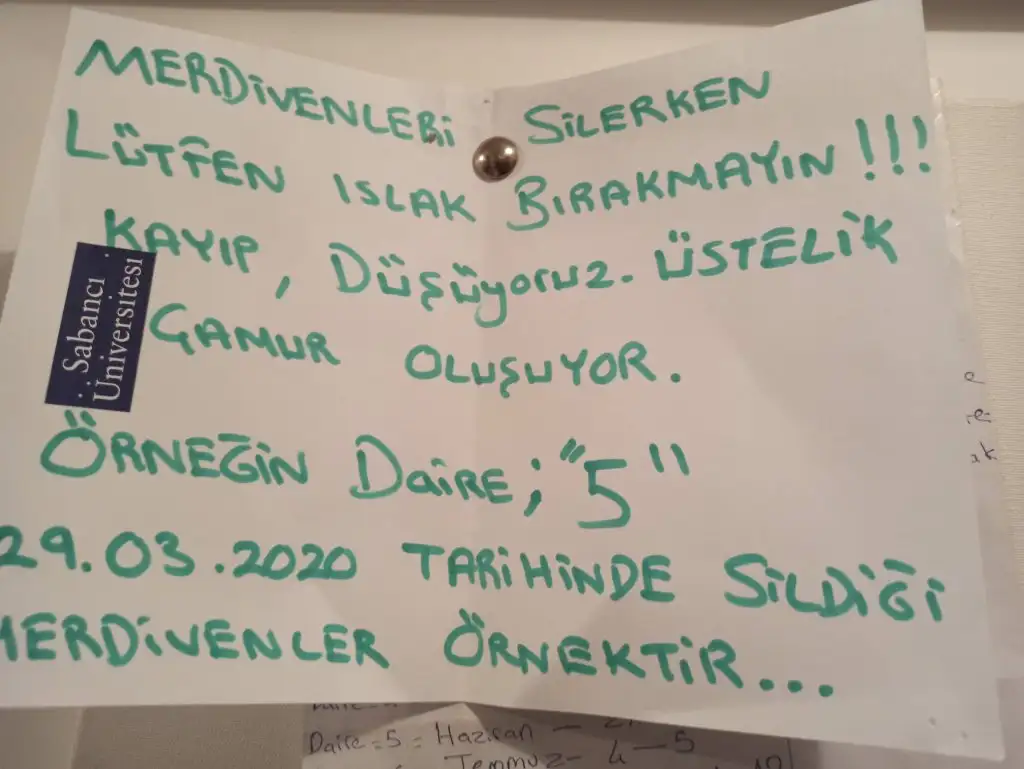 MERDİVENLERİ SİLERKEN
LÜTFEN ISLAK BIRAKMAYIN !!!
KAYIP, DÜŞÜYORUZ. ÜSTELİK
ÇAMUR OLUŞUYOR.
Sabancı
Üniversitesi
ÖRNEĞİN DAİRE; "5"
29.03.2020 TARİHİNDE SİLDİĞİ
MERDİVENLER ÖRNEKTİR...
Daire=5= Haziran —
Temmuz- 4-5